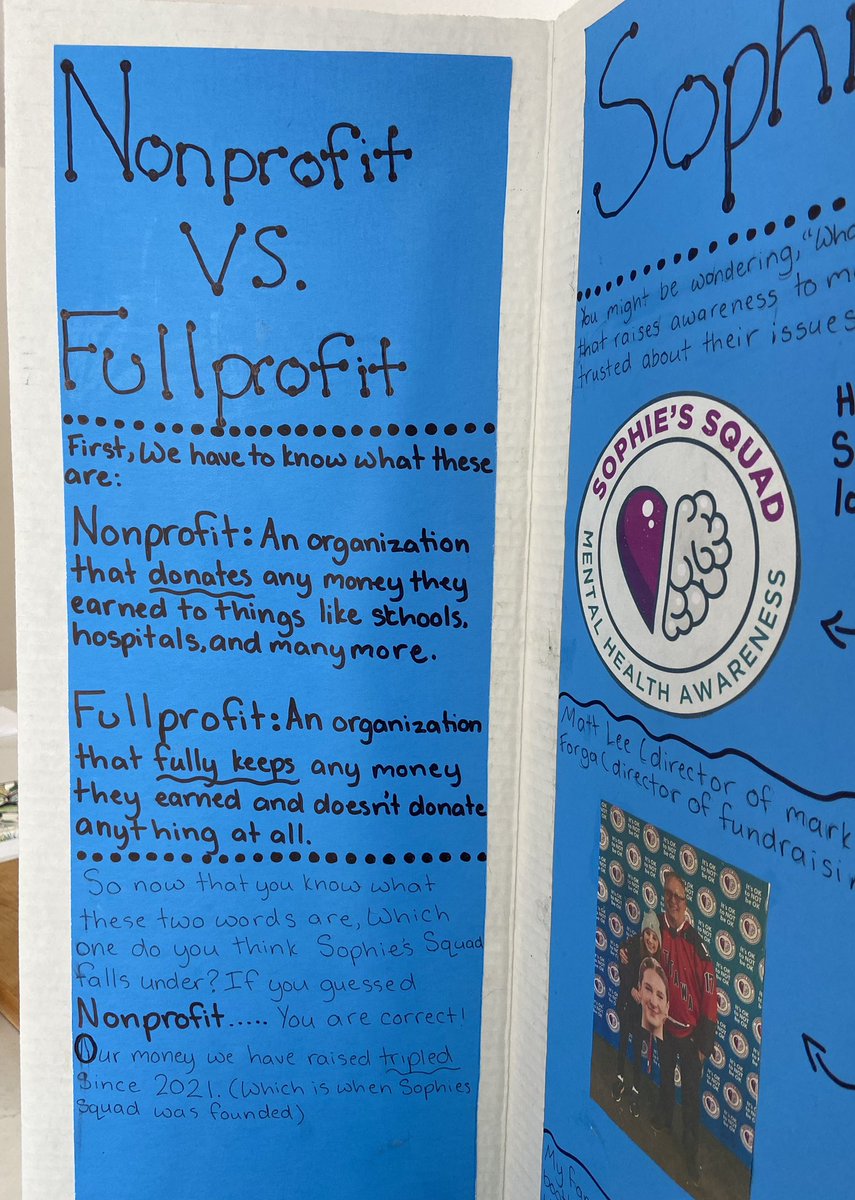 Nonprofit
vs.
Fullprofit
First, We have to know what these
are:
Nonprofit: An organization
that donates any money they
earned to things like schools,
hospitals, and many more.
Fullprofit: An organization
that fully keeps any money
they earned and doesn't donate
anything at all.
So now that you know what
these two words are, Which
one do you think Sophie's Squad
falls under? If you guessed
Nonprofit..... You are correct!
Our money we have raised tripled
Since 2021. (Which is when Sophies
Squad was founded)
Sophi
You might be wondering, "Wha
that raises awareness to m
trusted about their issues
SOPHIE'S SQUAD
MENTAL HEALTH AWARENESS
H
S
Matt Lee (director of mark
Forga (director of fundraisin
It's OK
to NOT
be OK
My